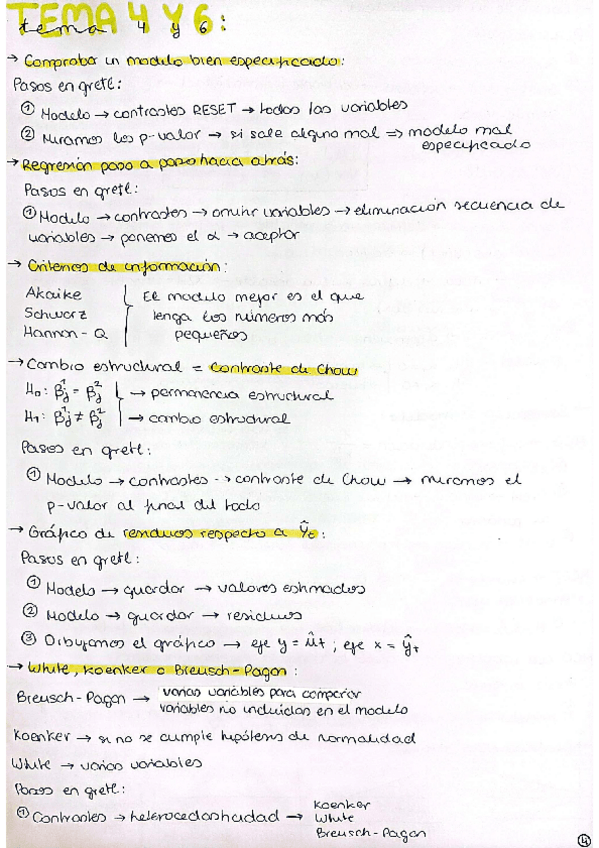 TEMA 4 Y 6:
tema 4 y 6:
→ Comprobar un modelo bien especificado:
Pasos en gretl:
① Modelo → contrastes RESET → todas las variables
② Miramos los p-valor → si sale alguno mal => modelo mal
especificado
→ Regresión paso a paso hacia atrás:
Pasos en gretl:
① Modelo → contrastes → omitir variables → eliminación secuencia de
variables → ponemos el α → aceptar
→ Criterios de información:
Akaike } El modelo mejor es el que
Schwarz tenga los números más
Hannan-Q pequeños
→ Cambio estructural = Contraste de Chow
H₀: βj¹ = βj² → permanencia estructural
H₁: βj¹ ≠ βj² → cambio estructural
Pasos en gretl:
① Modelo → contrastes -> contraste de Chow → miramos el
p-valor al final del todo
→ Gráfico de residuos respecto a Ŷt:
Pasos en gretl:
① Modelo → guardar → valores estimados
② Modelo → guardar → residuos
③ Dibujamos el gráfico → eje y = ût ; eje x = ŷt
→ White, Koenker o Breusch-Pagan:
Breusch-Pagan → varias variables para comparar
variables no incluidas en el modelo
Koenker → si no se cumple hipótesis de normalidad
White → varias variables
Pasos en gretl:
① Contrastes → heterocedasticidad → Koenker
White
Breusch-Pagan
④